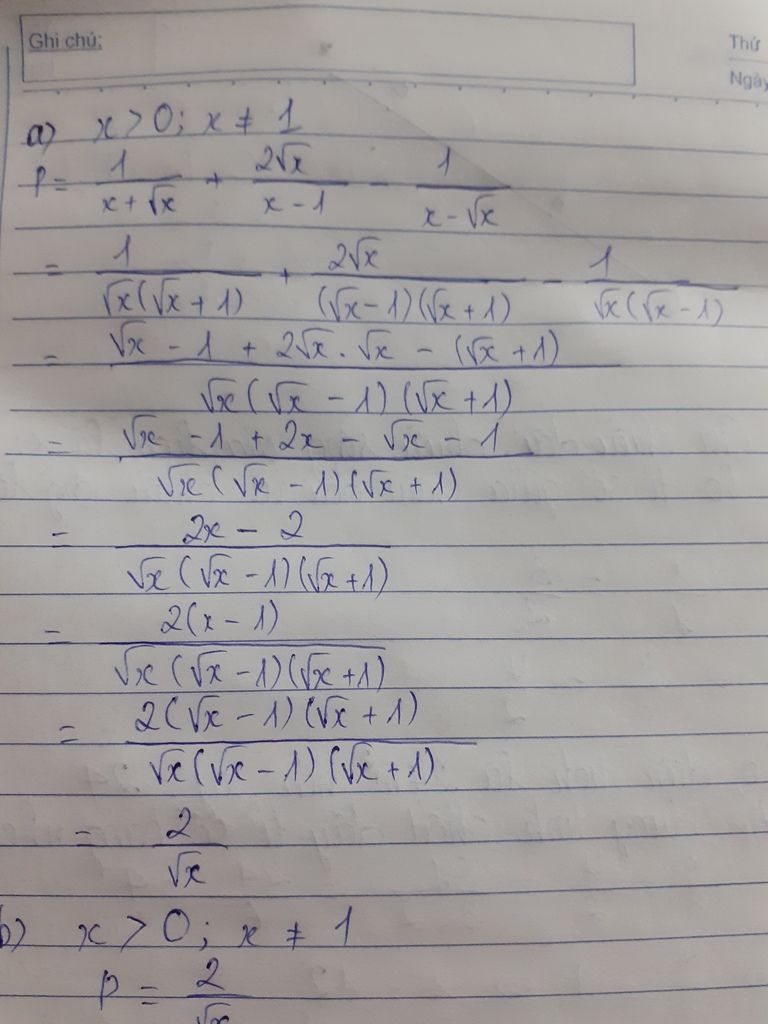 Ghi chú:
Thứ
Ngày
a) x > 0; x ≠ 1
P = 1/(x + √x) + 2√x/(x - 1) - 1/(x - √x)
= 1/(√x(√x + 1)) + 2√x/((√x - 1)(√x + 1)) - 1/(√x(√x - 1))
= (√x - 1 + 2√x . √x - (√x + 1))/(√x(√x - 1)(√x + 1))
= (√x - 1 + 2x - √x - 1)/(√x(√x - 1)(√x + 1))
= (2x - 2)/(√x(√x - 1)(√x + 1))
= 2(x - 1)/(√x(√x - 1)(√x + 1))
= 2(√x - 1)(√x + 1)/(√x(√x - 1)(√x + 1))
= 2/√x
b) x > 0; x ≠ 1
P = 2/√x